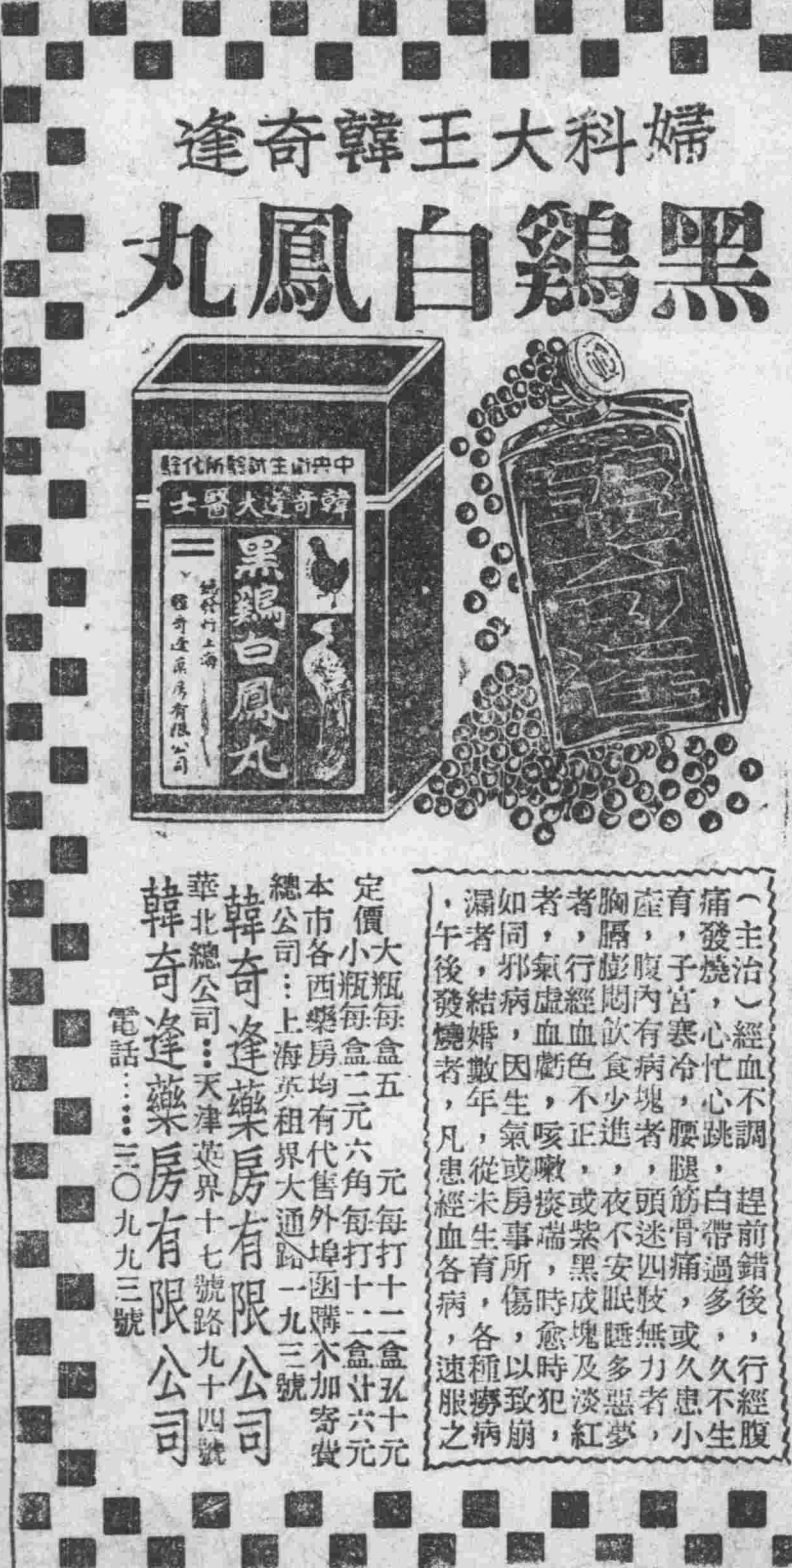 婦科大王韓奇逢
黑鷄白鳳丸
中央衛生試驗所化驗
韓奇逢大醫士
黑鷄白鳳丸
總發行上海
韓奇逢藥房有限公司
韓奇逢
（主治）經血不調　趕前錯後，行經腹
痛發燒，心忙心跳，白帶過多，久不生
育，子宮寒冷，腰腿筋骨痛，或久患小
產，腹內有病塊者，頭迷四肢無力者，
胸膈膨悶飲食少進，夜不安眠睡多惡夢
者，行經血色不正，或紫黑成塊及淡紅
者，氣虛血虧，咳嗽痰喘，時愈時犯，
如同邪病，因生氣或房事所傷，以致崩
漏者，結婚數年，從未生育，各種癆病
，午後發燒者，凡患經血各病，速服之
定價大瓶每盒五　元每打十二盒五十元
小瓶每盒二元六角每打十二盒廿六元
本市各西藥房均有代售外埠函購不加寄費
總公司…上海英租界大通路一九三號
韓奇逢藥房有限公司
華北總公司…天津英界十七號路九十四號
韓奇逢藥房有限公司
電話……三〇九九三號